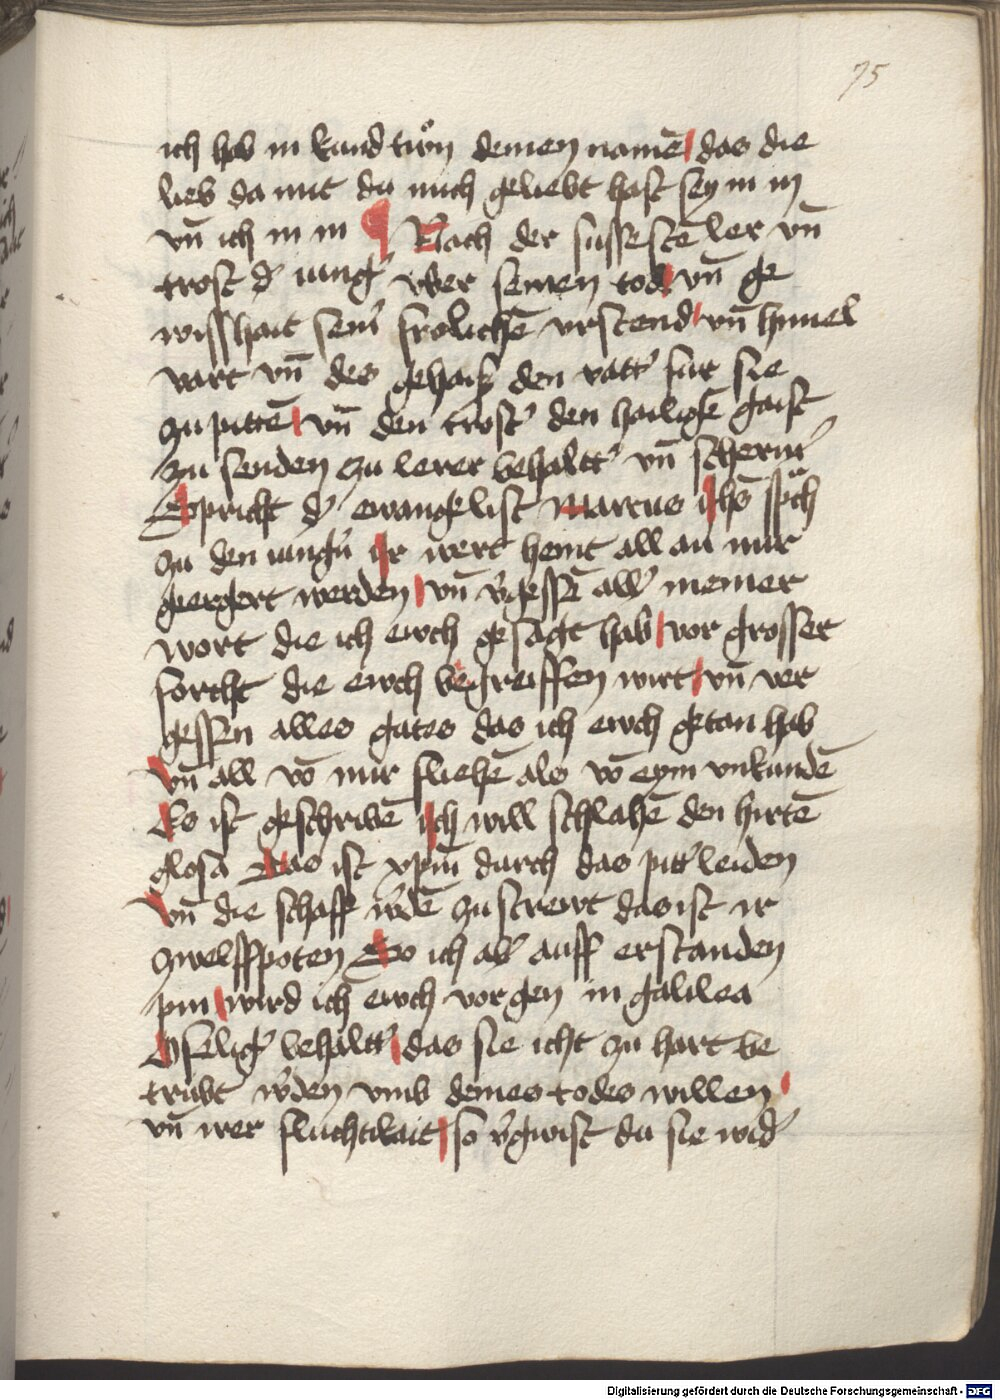 75
ich hab in kund tuͦn deinen namē das die
lieb da mit du mich geliebt hast sey in in
vn̄ ich in in Nach der sussestē ler vn̄
trost d' iung' vber seinen tod vn̄ ge
wisshait sein' frolichē vrstend vn̄ himel
vart vn̄ des gehaiß den vatt' fur sie
zu pittē vn̄ den trost' den hailigē gaist
zu senden zu lerer behaltt' vn̄ scherm'
Spricht d' ewangelist Marcus ihs sp̈ch
zu den iung'n ir wert heint all an mir
geergert werden vn̄ v'gessē all' meiner
wort die ich ewch gesagt hab vor grosser
forcht die ewch begreiffen wirt vn̄ ver
gessen alles gutes das ich ewch getan hab
vn̄ all vō mir fliehē als vō eym vnkundē
Es ist geschribē ich will schlahē den hirtē
glosa Das ist xpm̄ durch das pitt' leiden
vn̄ die schaff w'dē zustrewt das ist ir
zwelffpoten So ich ab' auff erstanden
pin wird ich ewch vorgen in galilea
O selig' behaltt' das sie icht zu hart be
trubt w'den vmb deines todes willen
vn̄ irer fluchtikait so v'gwist du sie wid'
Digitalisierung gefördert durch die Deutsche Forschungsgemeinschaft - DFG